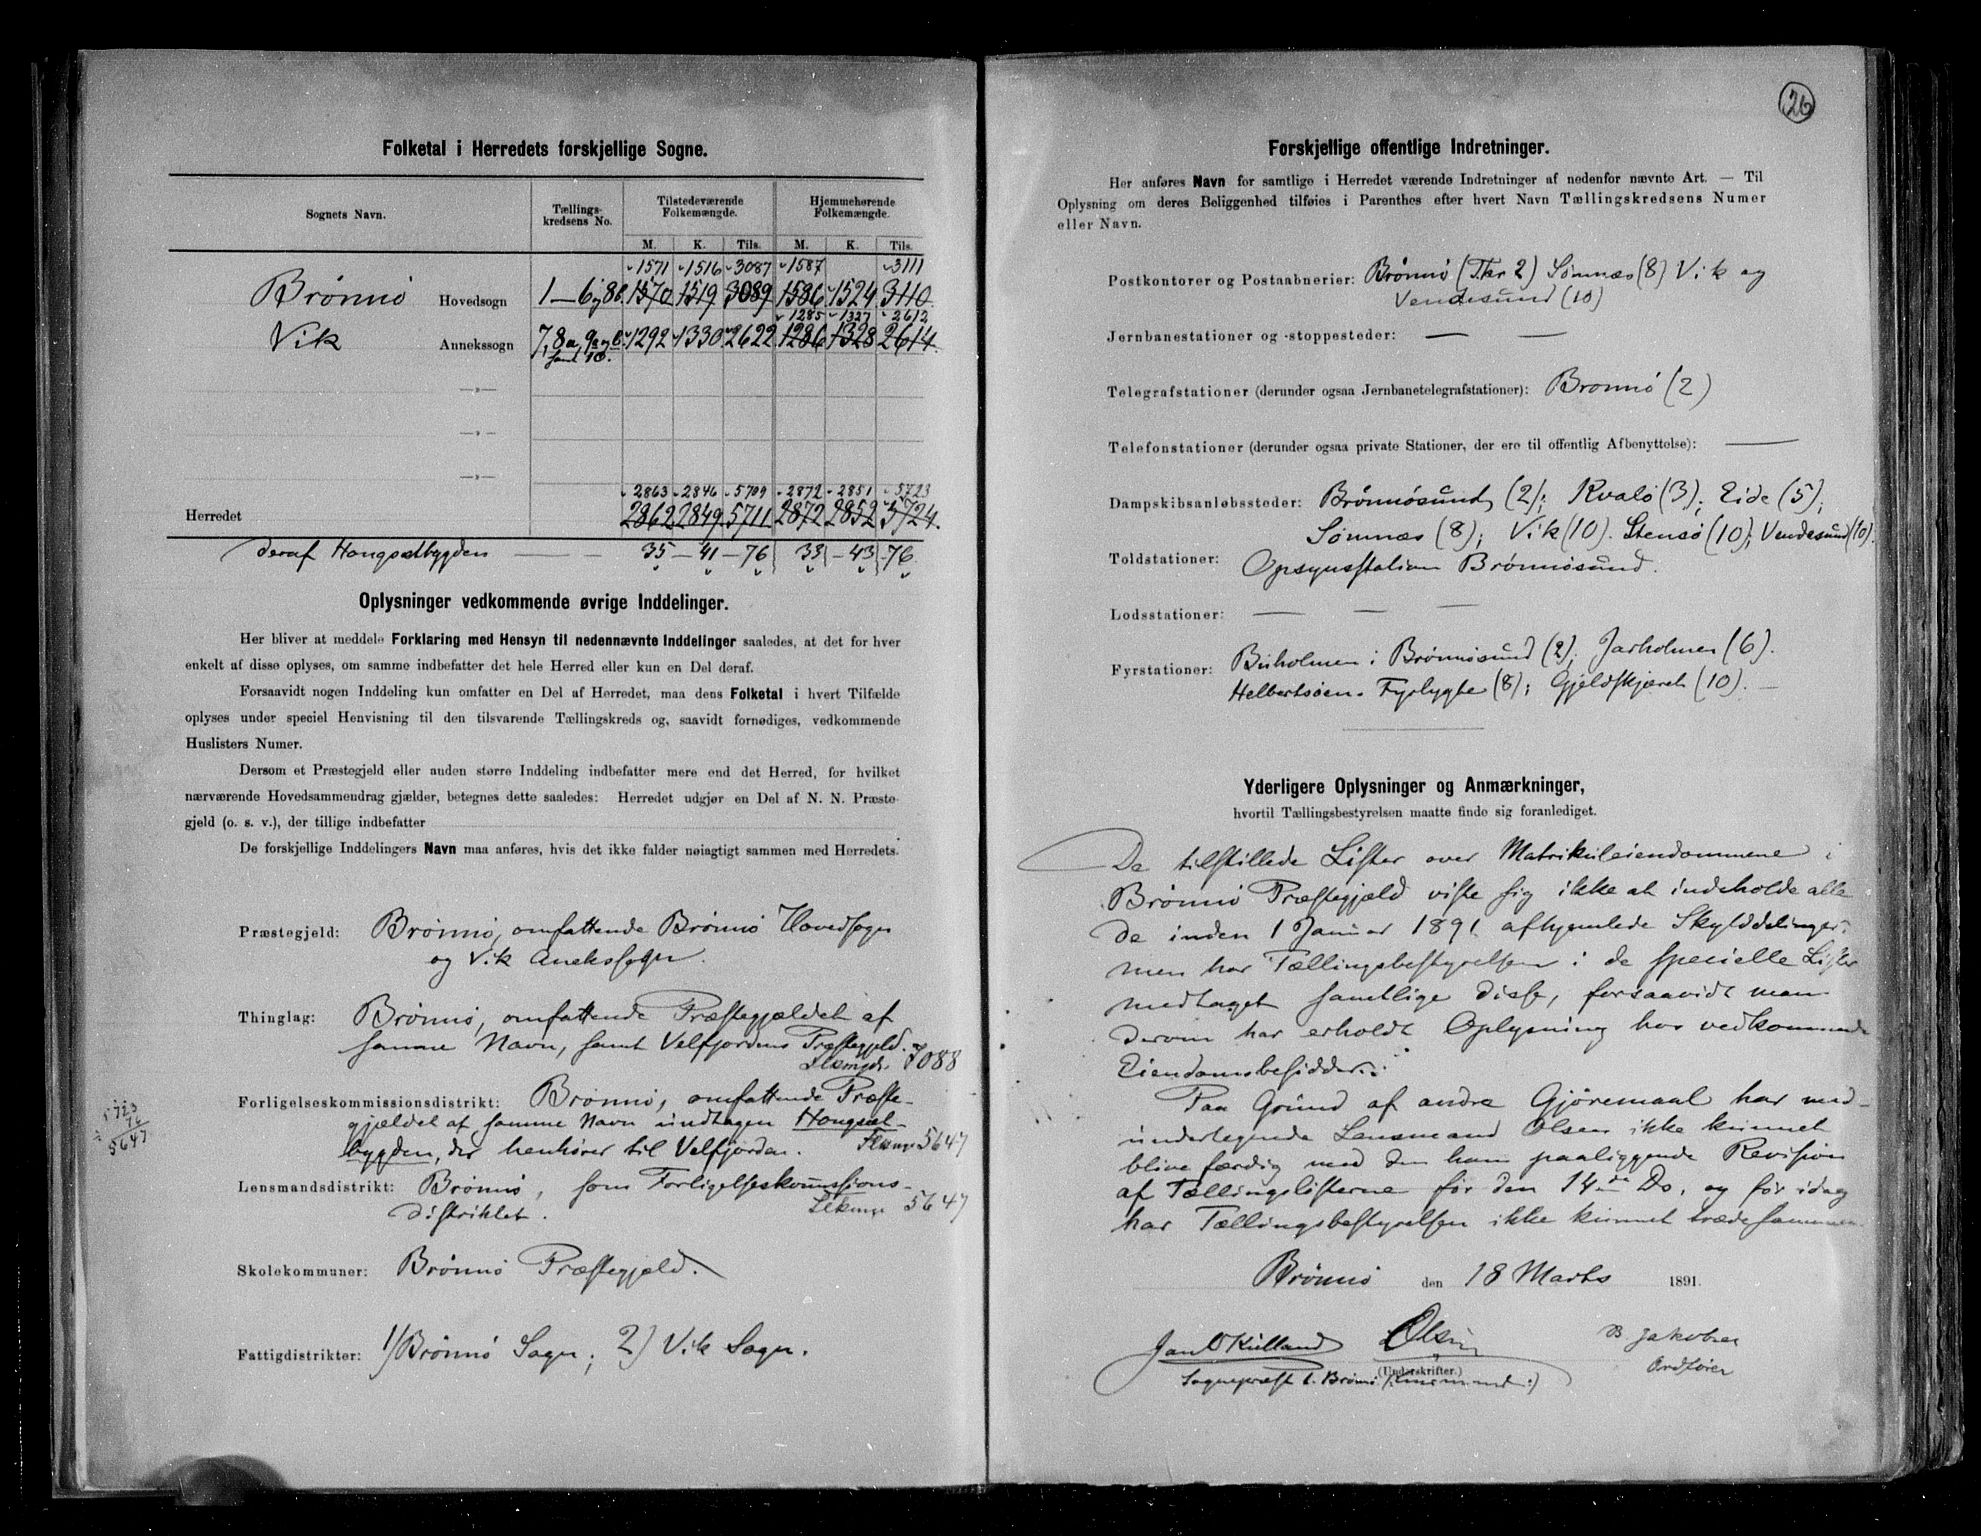 Folketal i Herredets forskjellige Sogne.
Sognets Navn.
Tællings-
kredsens No.
Tilstedeværende
Folkemængde.
Hjemmehørende
Folkemængde.
M. K. Tils. M. K. Tils.
1571 1516 3087 1587 3111
Brønnø Hovedsogn 1–6 og 8b. 1570 1519 3089 1586 1524 3110
1285 1327 2612
Vik Annekssogn 7, 8a, 9a og b. 1292 1330 2622 1286 1328 2614
samt 10.
—»—
—»—
—»—
2863 2846 5709 2872 2851 5723
Herredet 2862 2849 5711 2872 2852 5724
deraf Hongsetbygden — — 35 — 41 — 76 33 — 43 — 76
Oplysninger vedkommende øvrige Inddelinger.
Her bliver at meddele Forklaring med Hensyn til nedennævnte Inddelinger saaledes, at det for hver
enkelt af disse oplyses, om samme indbefatter det hele Herred eller kun en Del deraf.
Forsaavidt nogen Inddeling kun omfatter en Del af Herredet, maa dens Folketal i hvert Tilfælde
oplyses under speciel Henvisning til den tilsvarende Tællingskreds og, saavidt fornødiges, vedkommende
Huslisters Numer.
Dersom et Præstegjeld eller anden større Inddeling indbefatter mere end det Herred, for hvilket
nærværende Hovedsammendrag gjælder, betegnes dette saaledes: Herredet udgjør en Del af N. N. Præste-
gjeld (o. s. v.), der tillige indbefatter
De forskjellige Inddelingers Navn maa anføres, hvis det ikke falder nøiagtigt sammen med Herredets.
Præstegjeld: Brønnø, omfattende Brønnø Hovedsogn
og Vik Anekssogn.
Thinglag: Brønnø, omfattende Præstegjældet af
samme Navn, samt Velfjordens Præstegjeld.
7088
Forligelseskommissionsdistrikt: Brønnø, omfattende Præste-
gjældet af samme Navn undtagen Hongset-
bygden, der henhører til Velfjorden. 5647
5723
76
5647
Lensmandsdistrikt: Brønnø, som Forligelseskomissions-
distriktet. 5647
Skolekommuner: Brønnø Præstegjeld.
Fattigdistrikter: 1) Brønnø Sogn; 2) Vik Sogn.
26
Forskjellige offentlige Indretninger.
Her anføres Navn for samtlige i Herredet værende Indretninger af nedenfor nævnte Art. — Til
Oplysning om deres Beliggenhed tilføies i Parenthes efter hvert Navn Tællingskredsens Numer
eller Navn.
Postkontorer og Postaabnerier: Brønnø (Tkr 2) Sømnæs (8) Vik og
Vendesund (10)
Jernbanestationer og -stoppesteder: — —
Telegrafstationer (derunder ogsaa Jernbanetelegrafstationer): Brønnø (2)
Telefonstationer (derunder ogsaa private Stationer, der ere til offentlig Afbenyttelse): —
Dampskibsanløbssteder: Brønnøsund (2); Kvalø (3); Eide (5);
Sømnæs (8); Vik (10). Stensø (10); Vendesund (10).
Toldstationer: Opsynsstation Brønnøsund.
Lodsstationer: — — —
Fyrstationer: Buholmen i Brønnøsund (2); Jarholmen (6).
Helbertsøens Fyrlygte (8); Gjeldskjæret (10). —
Yderligere Oplysninger og Anmærkninger,
hvortil Tællingsbestyrelsen maatte finde sig foranlediget.
De tilstillede Lister over Matrikuleiendommene i
Brønnø Præstegjæld viste sig ikke at indeholde alle
de inden 1 Januar 1891 afhjemlede Skylddelinger.
men har Tællingsbestyrelsen i de specielle Lister
medtaget samtlige disse, forsaavidt man
derom har erholdt Oplysning hos vedkommende
Eiendomsbesidder.
Paa Grund af andre Gjøremaal har med-
underlegende Lensmand Olsen ikke kunnet
blive færdig med den ham paaliggende Revision
af Tællingslisterne før den 14de Ds, og før idag
har Tællingsbestyrelsen ikke kunnet træde sammen.
Brønnø den 18 Marts 1891.
Jan O Kielland Olsen B Jakobsen
(Underskrifter.)
Sogneprest t. Brønnø Lensmand Ordfører